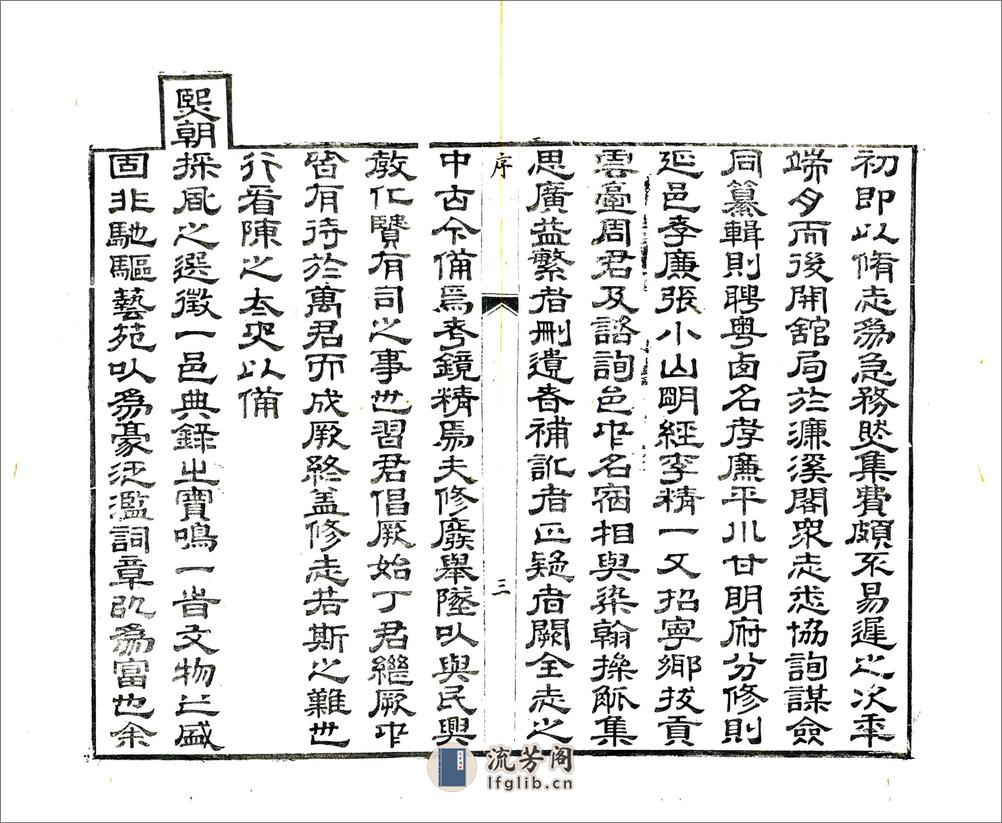 初即以脩志爲急務然集費頗不易遲之次年
端月而後開舘局於濂溪閣衆志悉協詢謀僉
同纂輯則聘粵卤名孝廉平川甘明府分修則
延邑孝廉張小山明經李精一又招寧鄉拔貢
雲臺周君及諮詢邑中名宿相與染翰操觚集
思廣益繁者刪遺者補訛者正疑者闕全志之
序
三
中古今備焉考鏡精焉夫修廢舉墜以與民興
教化贊有司之事也習君倡厥始丁君繼厥中
皆有待於萬君而成厥終盖修志若斯之難也
行看陳之太史以備
熙朝採風之選徵一邑典錄之實鳴一旹文物之盛
固非馳驅藝苑以爲豪泛濫詞章以爲富也余
流芳阁
lfglib.cn